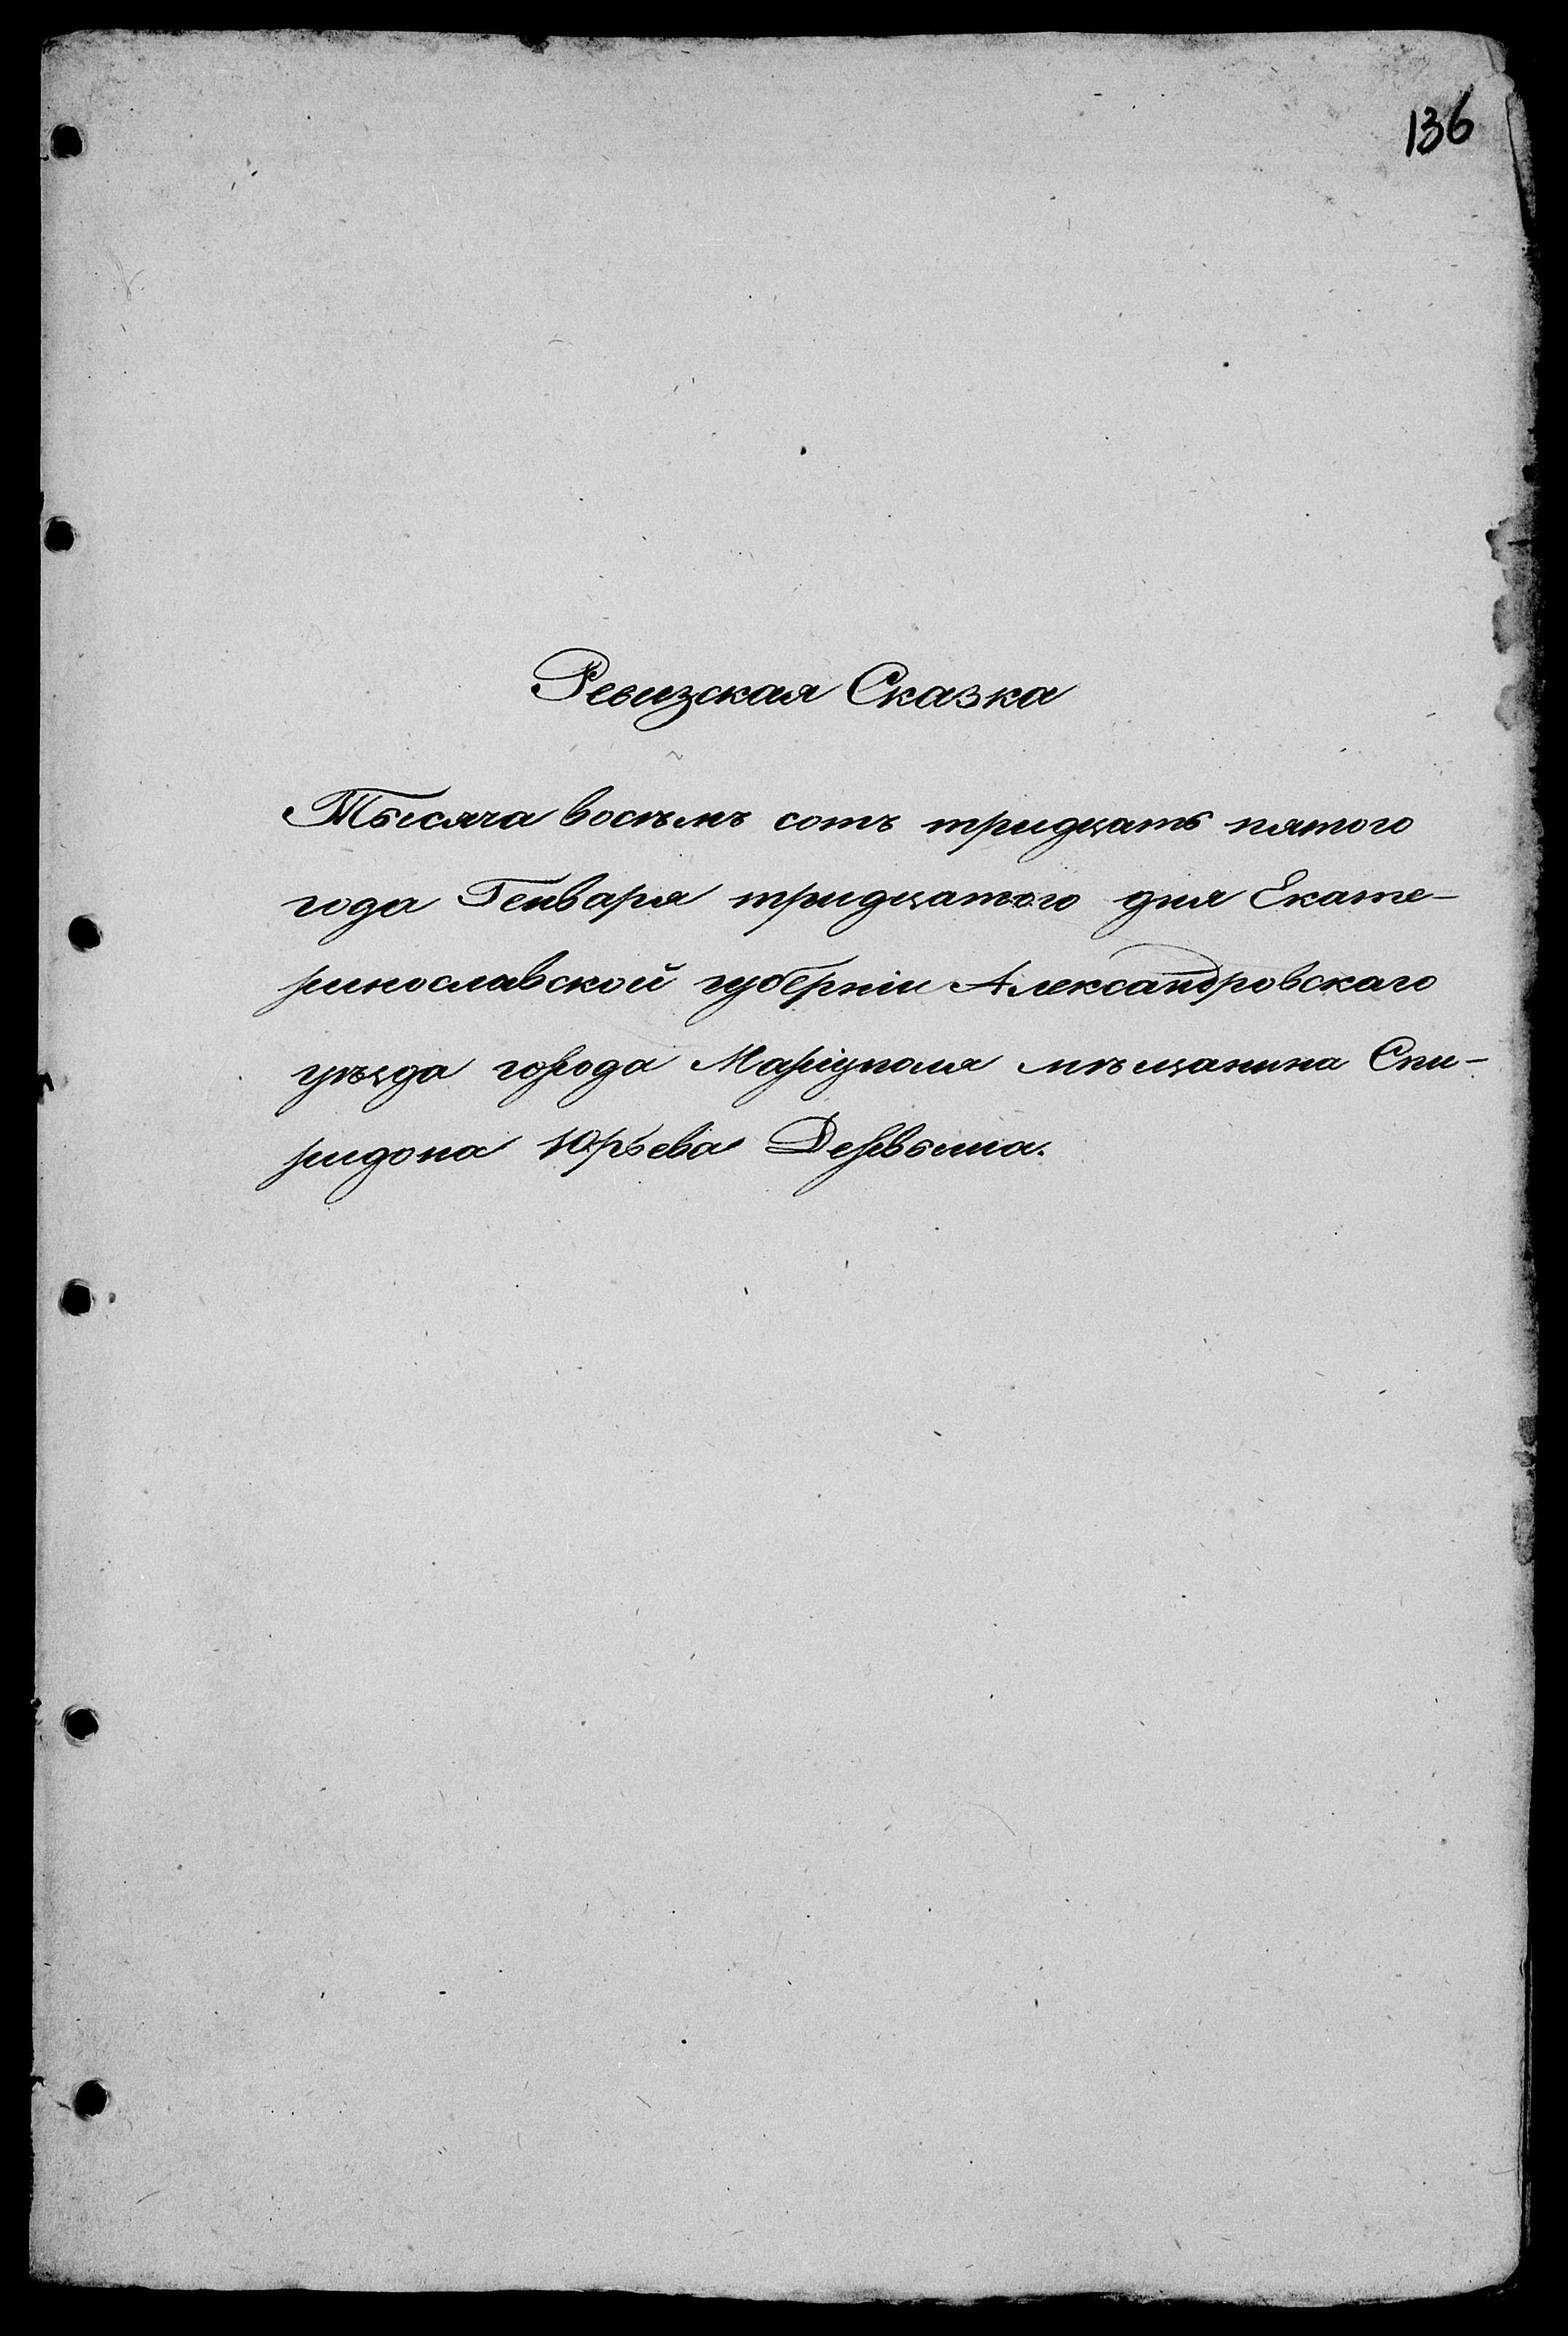 136
Ревизская Сказка
Тысяча восѣмъ сотъ тридцать пятого
года Генваря тридцатого дня Екате-
ринославской губерніи Александровскаго
уѣзда города Маріуполя мѣщанина Спи-
ридона Юрьева